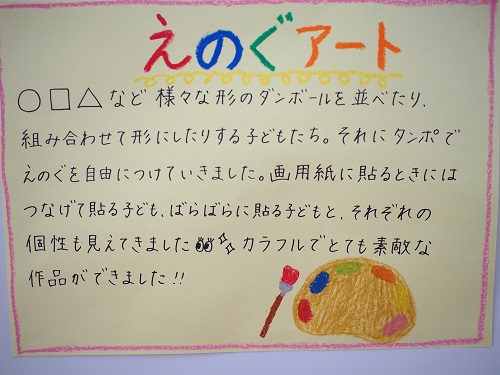 えのぐアート
○□△など様々な形のダンボールを並べたり、
組み合わせて形にしたりする子どもたち。それにタンポで
えのぐを自由につけていきました。画用紙に貼るときには
つなげて貼る子ども、ばらばらに貼る子どもと、それぞれの
個性も見えてきました👀✨カラフルでとても素敵な
作品ができました!!